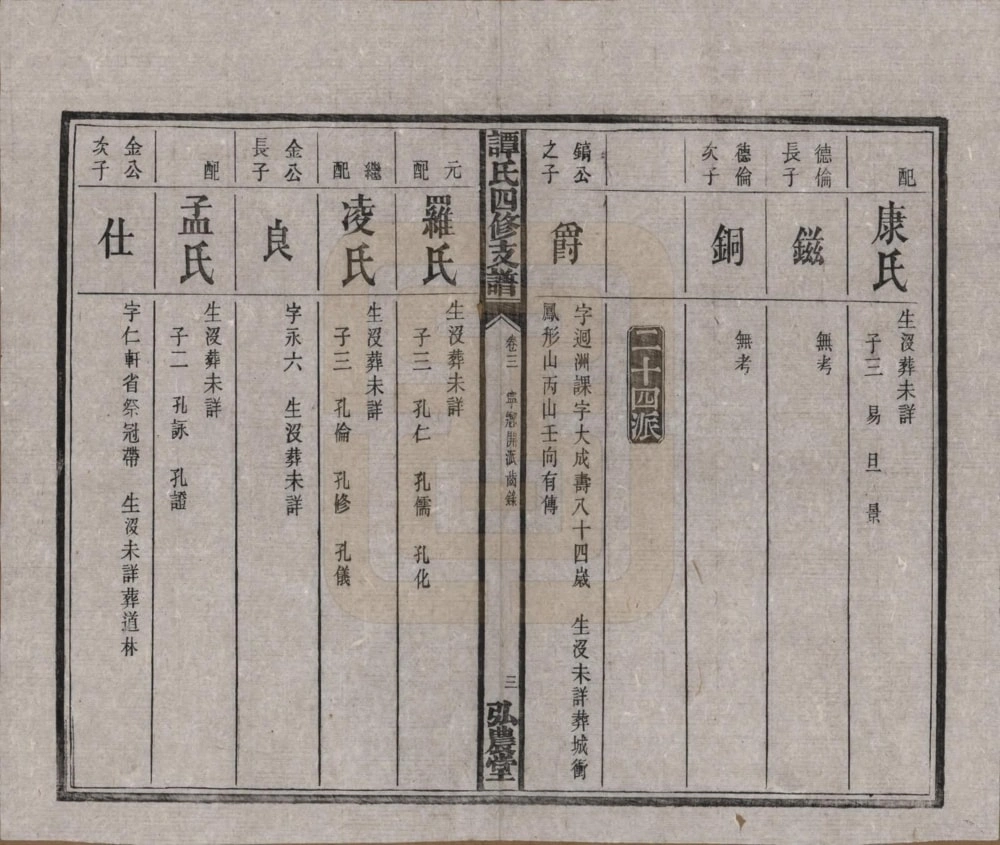 配
康氏
生沒葬未詳
子三 易 旦 景
德倫
長子
鎡
無考
德倫
次子
銅
無考
二十四派
鎬公
之子
爵
字迴洲課字大成壽八十四歲 生沒未詳葬城衝
鳳形山丙山壬向有傳
譚氏四修支譜
卷三
寧鄉開派齒錄
三
弘農堂
元
配
羅氏
生沒葬未詳
子三 孔仁 孔儒 孔化
繼
配
凌氏
生沒葬未詳
子三 孔倫 孔修 孔儀
金公
長子
良
字永六 生沒葬未詳
配
孟氏
生沒葬未詳
子二 孔詠 孔證
金公
次子
仕
字仁軒省祭冠帶 生沒未詳葬道林